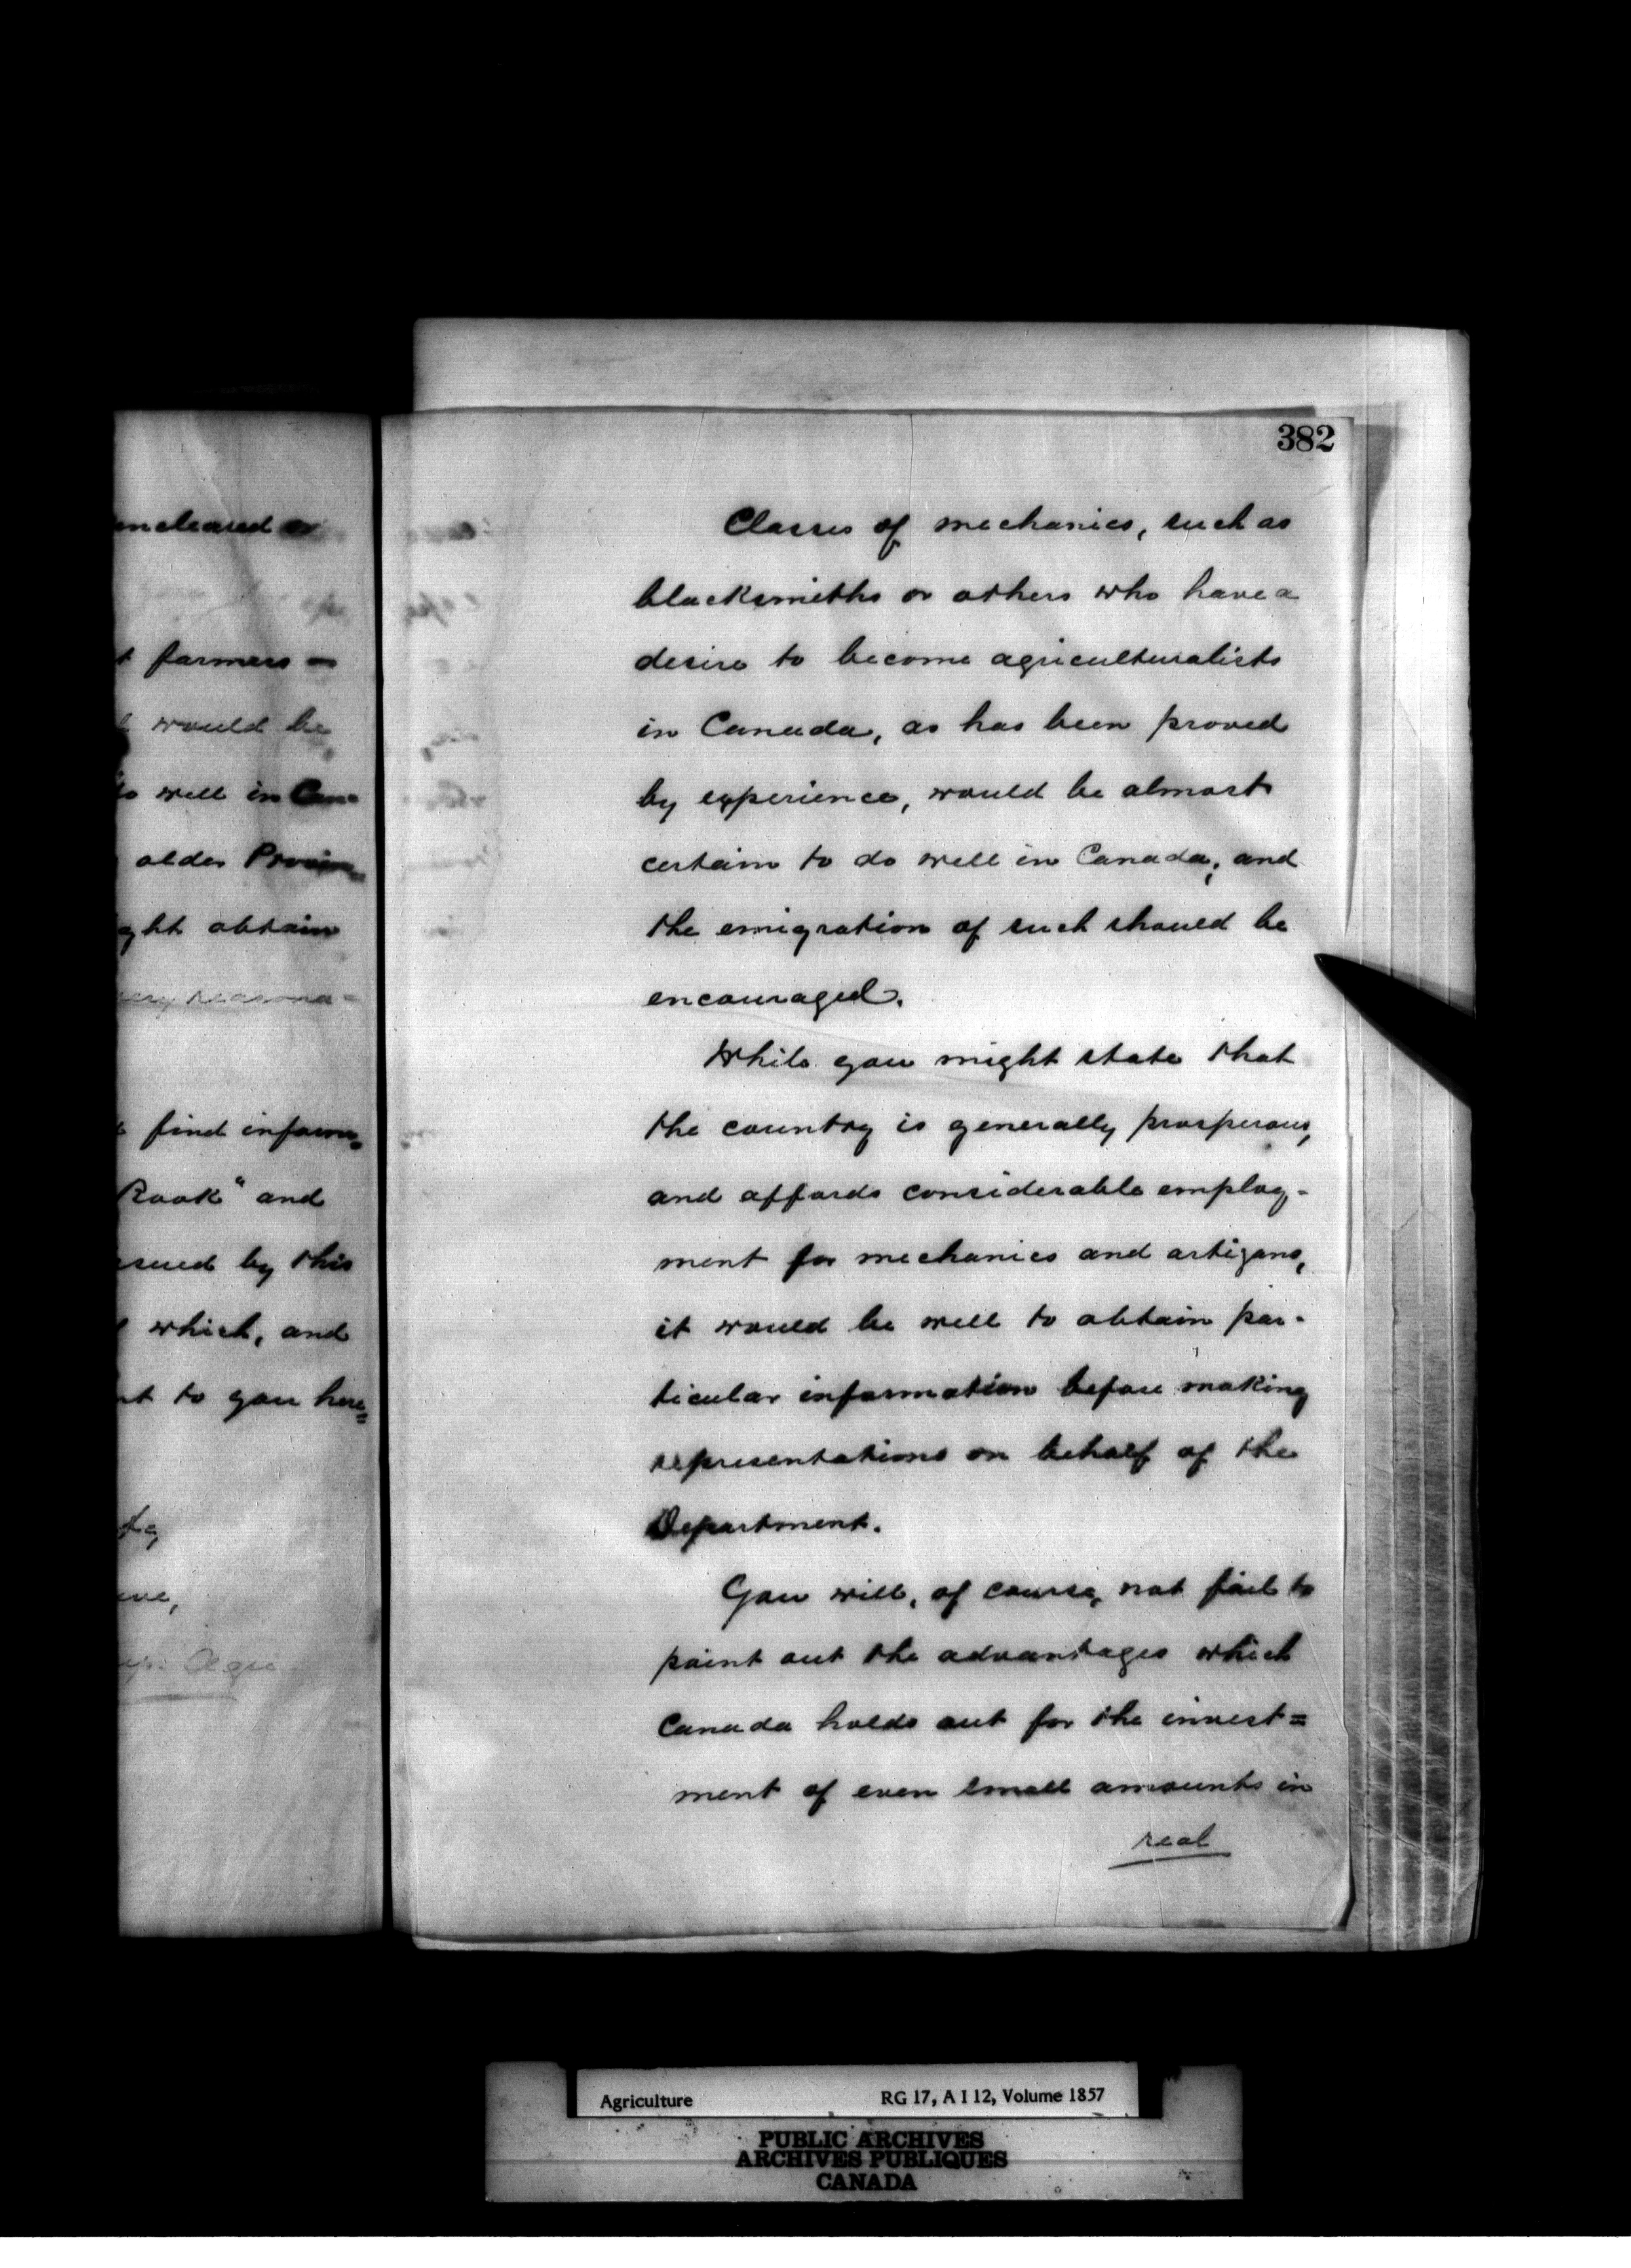 uncleared or
farmers =
would be
do well in Can=
older Provin=
ght obtain
very reasona=
find informa=
Book" and
issued by this
which, and
nt to you here=
382
Classes of mechanics, such as
blacksmiths or others who have a
desire to become agriculturalists
in Canada, as has been proved
by experience, would be almost
certain to do well in Canada; and
the emigration of such should be
encouraged.
While you might state that
the country is generally prosperous,
and affords considerable employ-
ment for mechanics and artizans,
it would be well to obtain par-
ticular information before making
representations on behalf of the
Department.
You will, of course, not fail to
point out the advantages which
Canada holds out for the invest=
ment of even small amounts in
real
Agriculture RG 17, A I 12, Volume 1857
PUBLIC ARCHIVES
ARCHIVES PUBLIQUES
CANADA